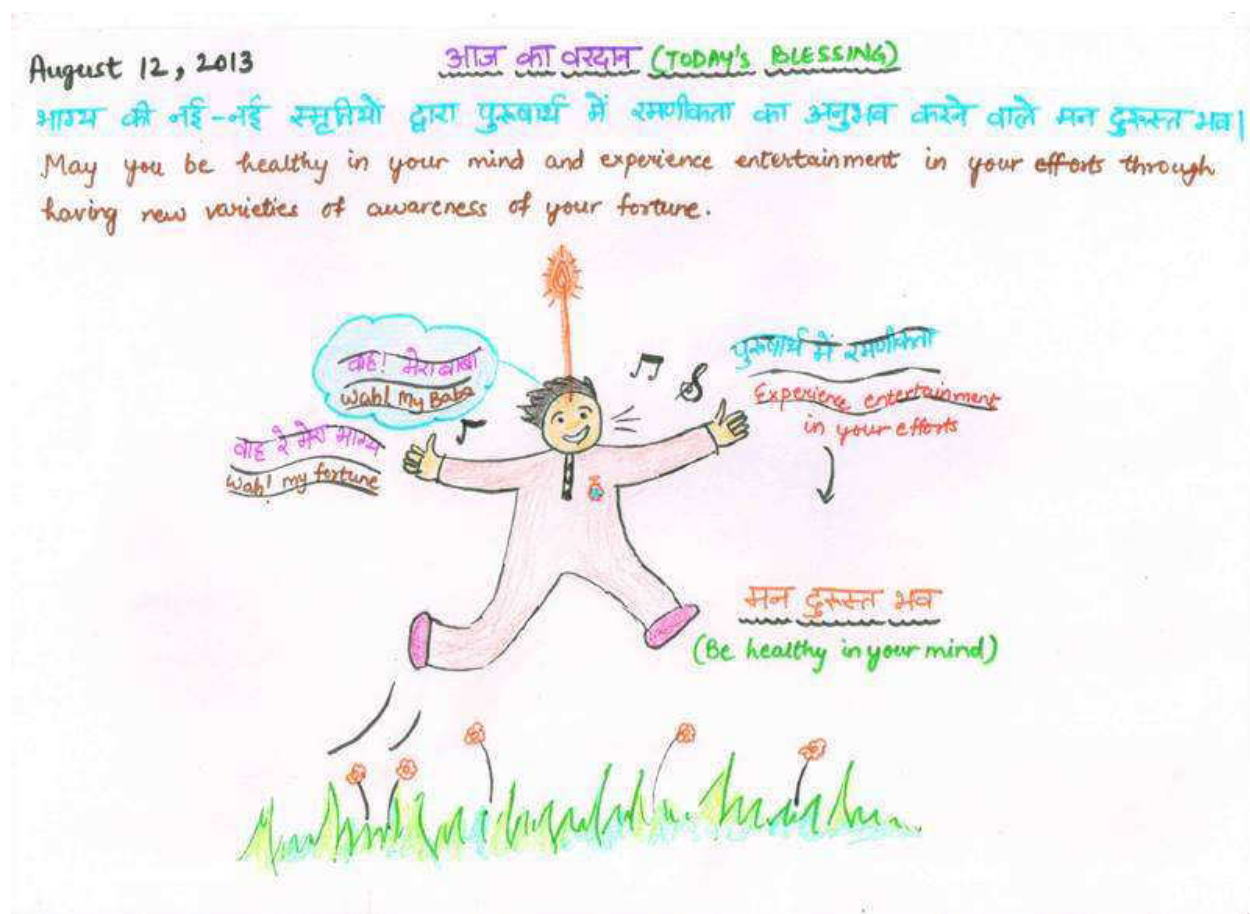 August 12, 2013
आज का वरदान (TODAY'S BLESSING)
भाग्य की नई-नई स्मृतियों द्वारा पुरूषार्थ में रमणीकता का अनुभव करने वाले मन दुरूस्त भव।
May you be healthy in your mind and experience entertainment in your efforts through
having new varieties of awareness of your fortune.
वाह! मेरा बाबा
Wah! My Baba
वाह रे मेरा भाग्य
Wah! my fortune
पुरूषार्थ में रमणीकता
Experience entertainment
in your efforts
मन दुरूस्त भव
(Be healthy in your mind)